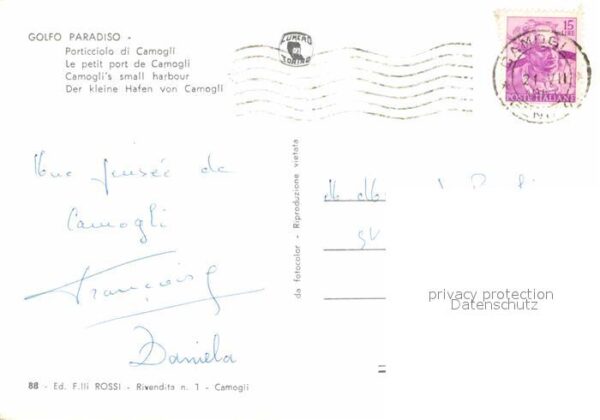 GOLFO PARADISO -
Porticciolo di Camogli
Le petit port de Camogli
Camogli's small harbour
Der kleine Hafen von Camogli
FUMERO
TORINO
15
LIRE
CAMOGLI
21 VIII
POSTE ITALIANE
Une pensée de
Camogli
François
Daniela
da fotocolor - Riproduzione vietata
privacy protection
Datenschutz
88 - Ed. F.lli ROSSI - Rivendita n. 1 - Camogli